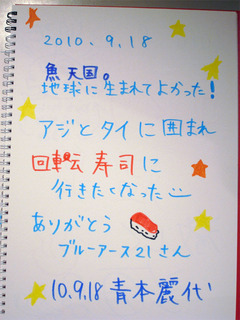 2010.9.18
魚天国。
地球に生まれてよかった!
アジとタイに囲まれ
回転寿司に
行きたくなった
ありがとう
ブルーアース21さん
10.9.18 青本麗代